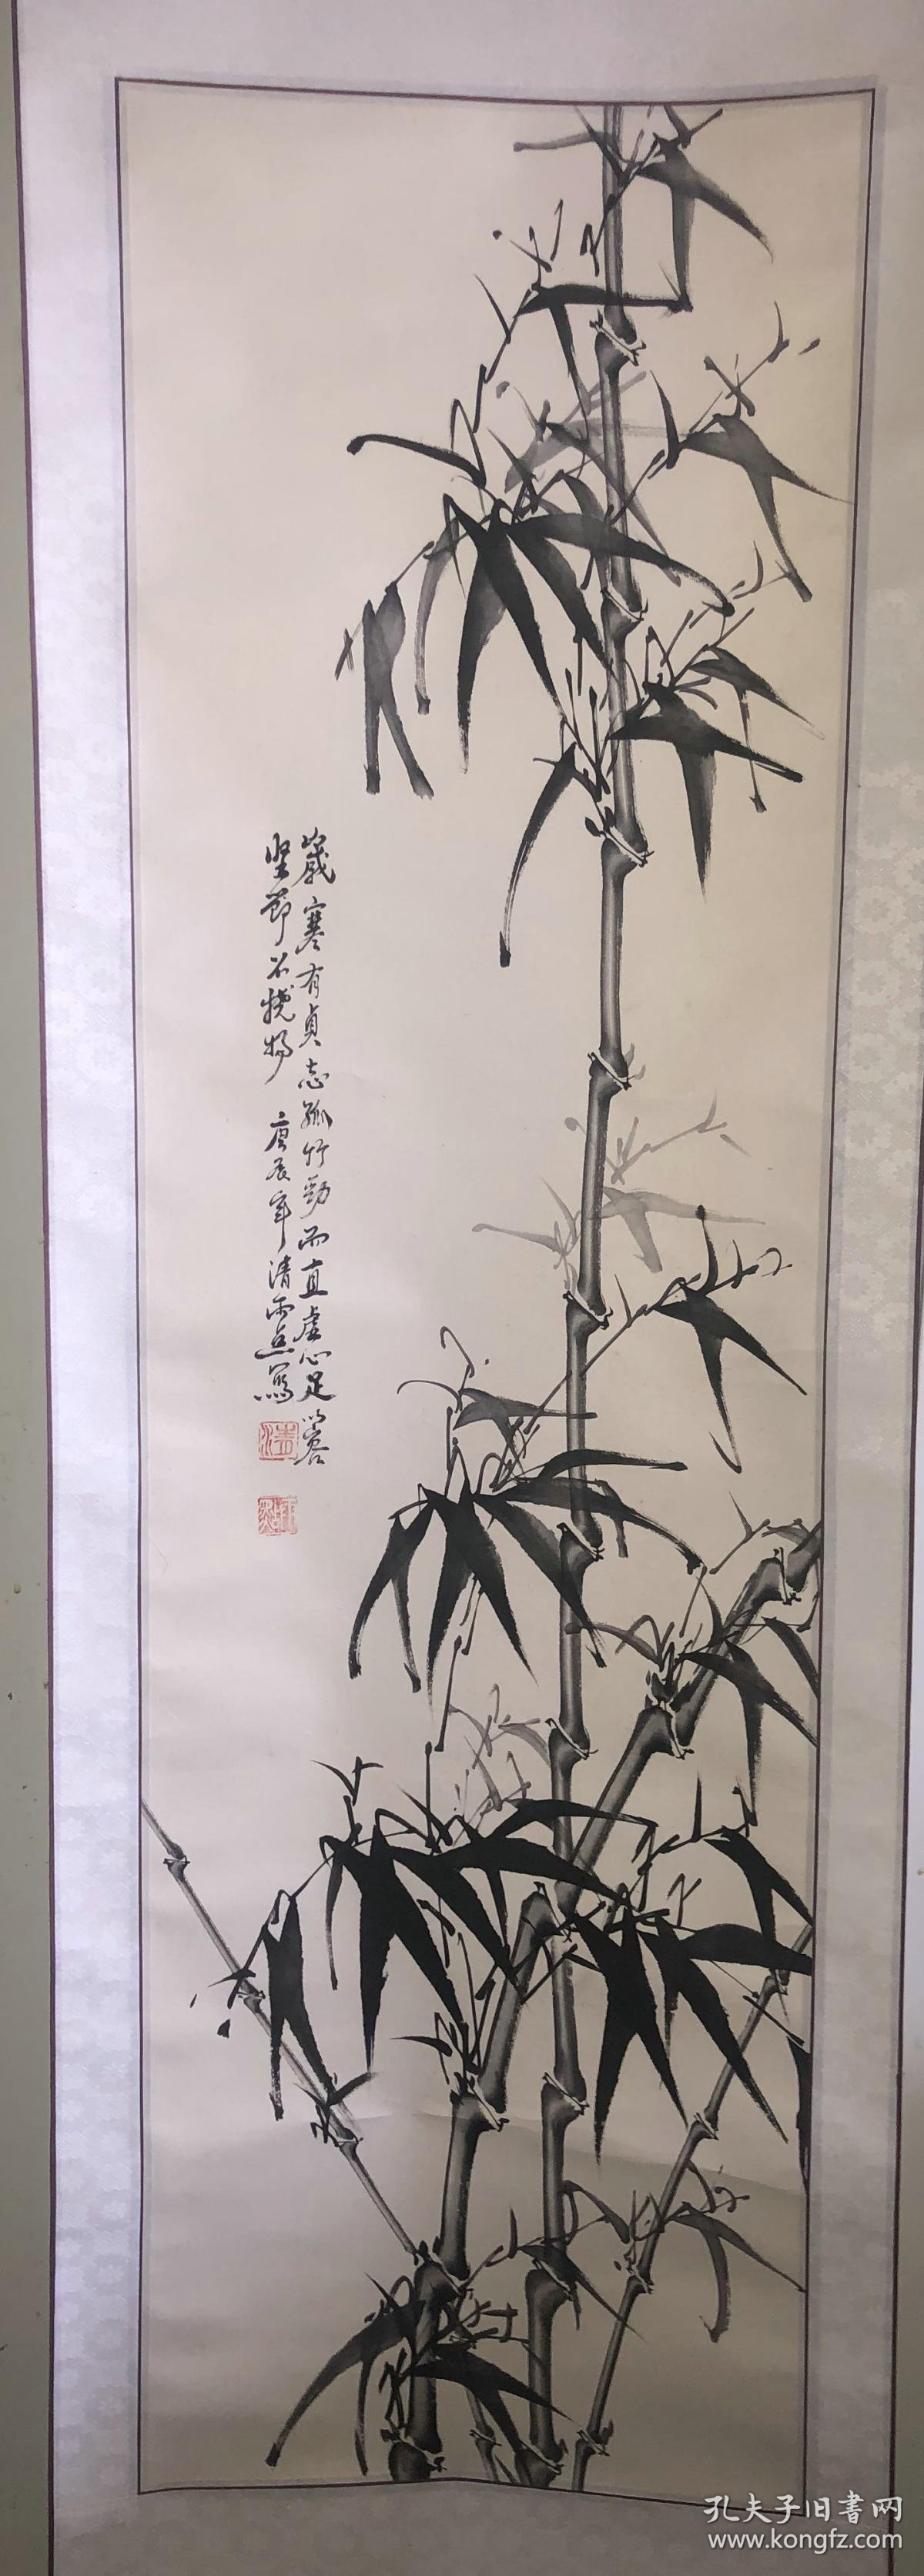 歲寒有貞志孤竹勁而直虛心足以容
坚節不撓物 庚辰年清雨点寫
孔夫子旧書网
www.kongfz.com